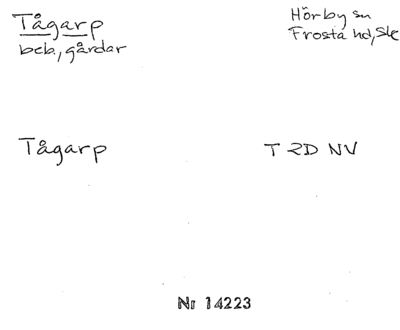 Tågarp
beb., gårdar
Hörby sn
Frosta hd, Sk
Tågarp
T 2D NV
Nr 14223